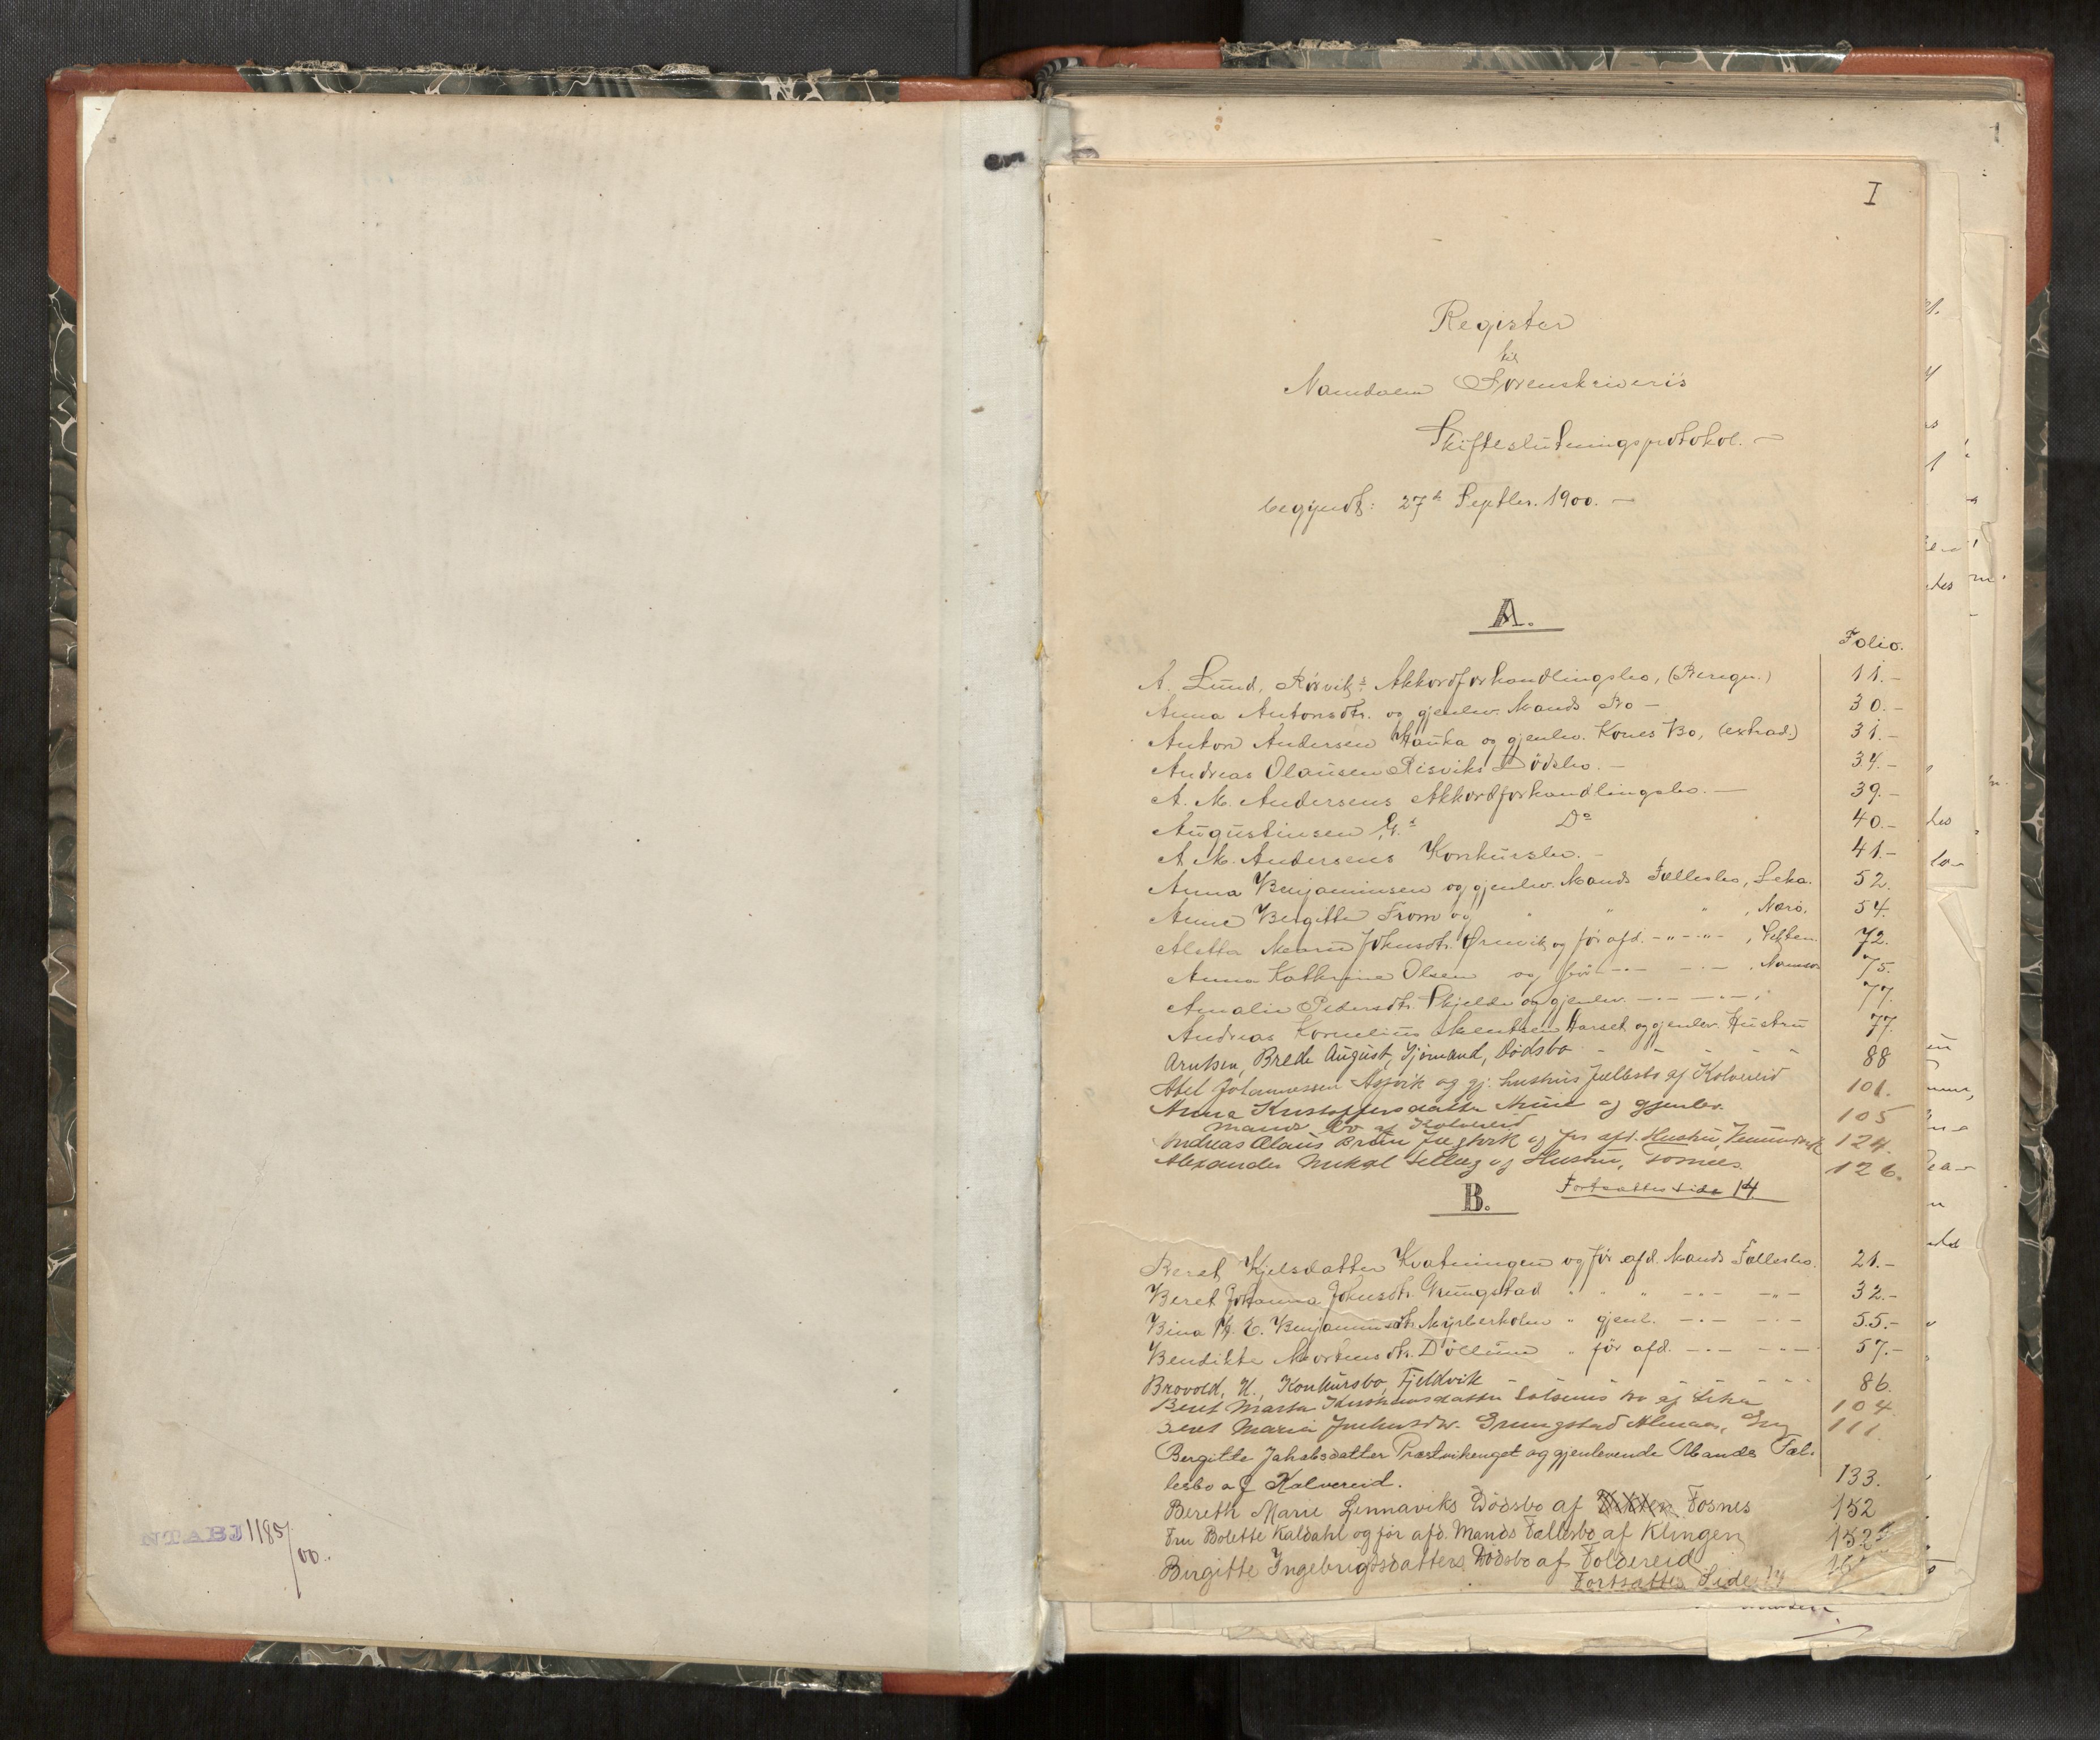 NTABJ 1185/00.
I
Register
til
Namdalen Sorenskriveris
Skifteslutningsprotokol. —
begyndt: 27de Septbr. 1900. —
A.
Folio.
A. Lund, Rørviks Akkordforhandlingsbo, (Beregn.) 11.-
Anna Antonsdtr. og gjenlev. Mands Bo — 30.-
Anton Andersen Hauka og gjenlev. Kones Bo, (extrad.) 31.-
Andreas Olausen Risviks Dødsbo. — 34.-
A. M. Andersens Akkordforhandlingsbo. — 39.-
Augustinsen, Do 40.-
A. M. Andersens Konkursbo. — 41.-
Anna Benjaminsen og gjenlev. Mands Fællesbo, Leka. 52.
Anne Bergitte From og " " " , Nærö. 54.
Aletta Marie Johnsdtr. Ørnvik og før afd. -"- -"- , Vikten. 72.
Anna Kathrine Olsen og før -"- -"- , Namsos 75.
Amalie Pedersdtr. Skjelde og gjenlev. -"- -"- 77.
Andreas Kornelius Harset og gjenlev. Hustru 77.
Arntsen, Brede August, Sjömand, Dödsbo - - - - - 88
Abel Johannessen Aspvik og gj. hustrus fællesbo af Kolvereid 101.
Anna Kristoffersdatter og gjenlev.
mands bo af Kolvereid 105
Andreas Olaus og før afd. Hustru, 124.
Alexander Mikal og Hustru, Fosnes. 126.
Fortsættes side 14
B.
Beret Kjelsdatter Kvatningen og før afd. Mands Fællesbo. 21.-
Beret Johanna Johnsdtr. Grungstad " " " -"- -"- 32.-
Bina E. Benjaminsdtr. " gjenl. -"- -"- 55.-
Bendikte Mortensdtr. Döllum " før afd. -"- -"- 57.-
Brovold, H., Konkursbo, Fjeldvik - - - - - 86.
Beret Marta Kristiansdatter bo af Leka 104
Beret Maria Grungstad 111.
Bergitte Jakobsdatter Præstvikenget og gjenlevende Mands Fæl-
lesbo af Kolvereid. 133.
Bereth Marie Lennaviks Dödsbo af Fosnes 152
Fru Bolette Kaldahl og før afd. Mands Fællesbo af Klingen 152
Birgitte Ingebrigtsdatters Dödsbo af Foldereid
Fortsættes Side 14